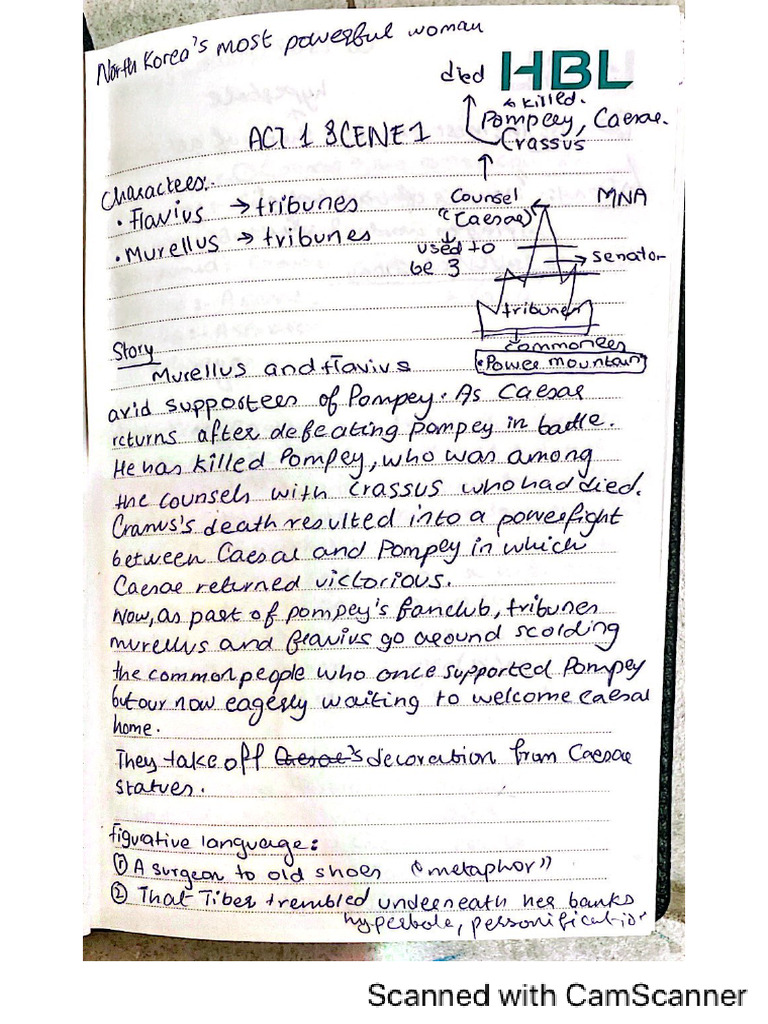 North Korea's most powerful woman
died HBL
↳ killed.
Pompeey, Caesar.
Crassus
ACT 1 SCENE 1
Characters:
• Flavius → tribunes
• Murellus → tribunes
Counsel
"(Caesar)"
MNA
used to
be 3
→ senator
tribunes
commoners
•Power mountain
Story
Murellus and flavius
avid supporters of Pompey. As Caesar
returns after defeating pompey in battle.
He has killed Pompey, who was among
the counsels with Crassus who had died.
Crassus's death resulted into a powerfight
between Caesar and Pompey in which
Caesar returned victorious.
Now, as part of pompey's fanclub, tribunes
murellus and flavius go around scolding
the common people who once supported Pompey
but our now eagerly waiting to welcome caesar
home.
They take off Caesar's decoration from Caesar
statues.
figurative language:
① A surgeon to old shoes "metaphor"
② That Tiber trembled underneath her banks
hyperbole, personification
Scanned with CamScanner